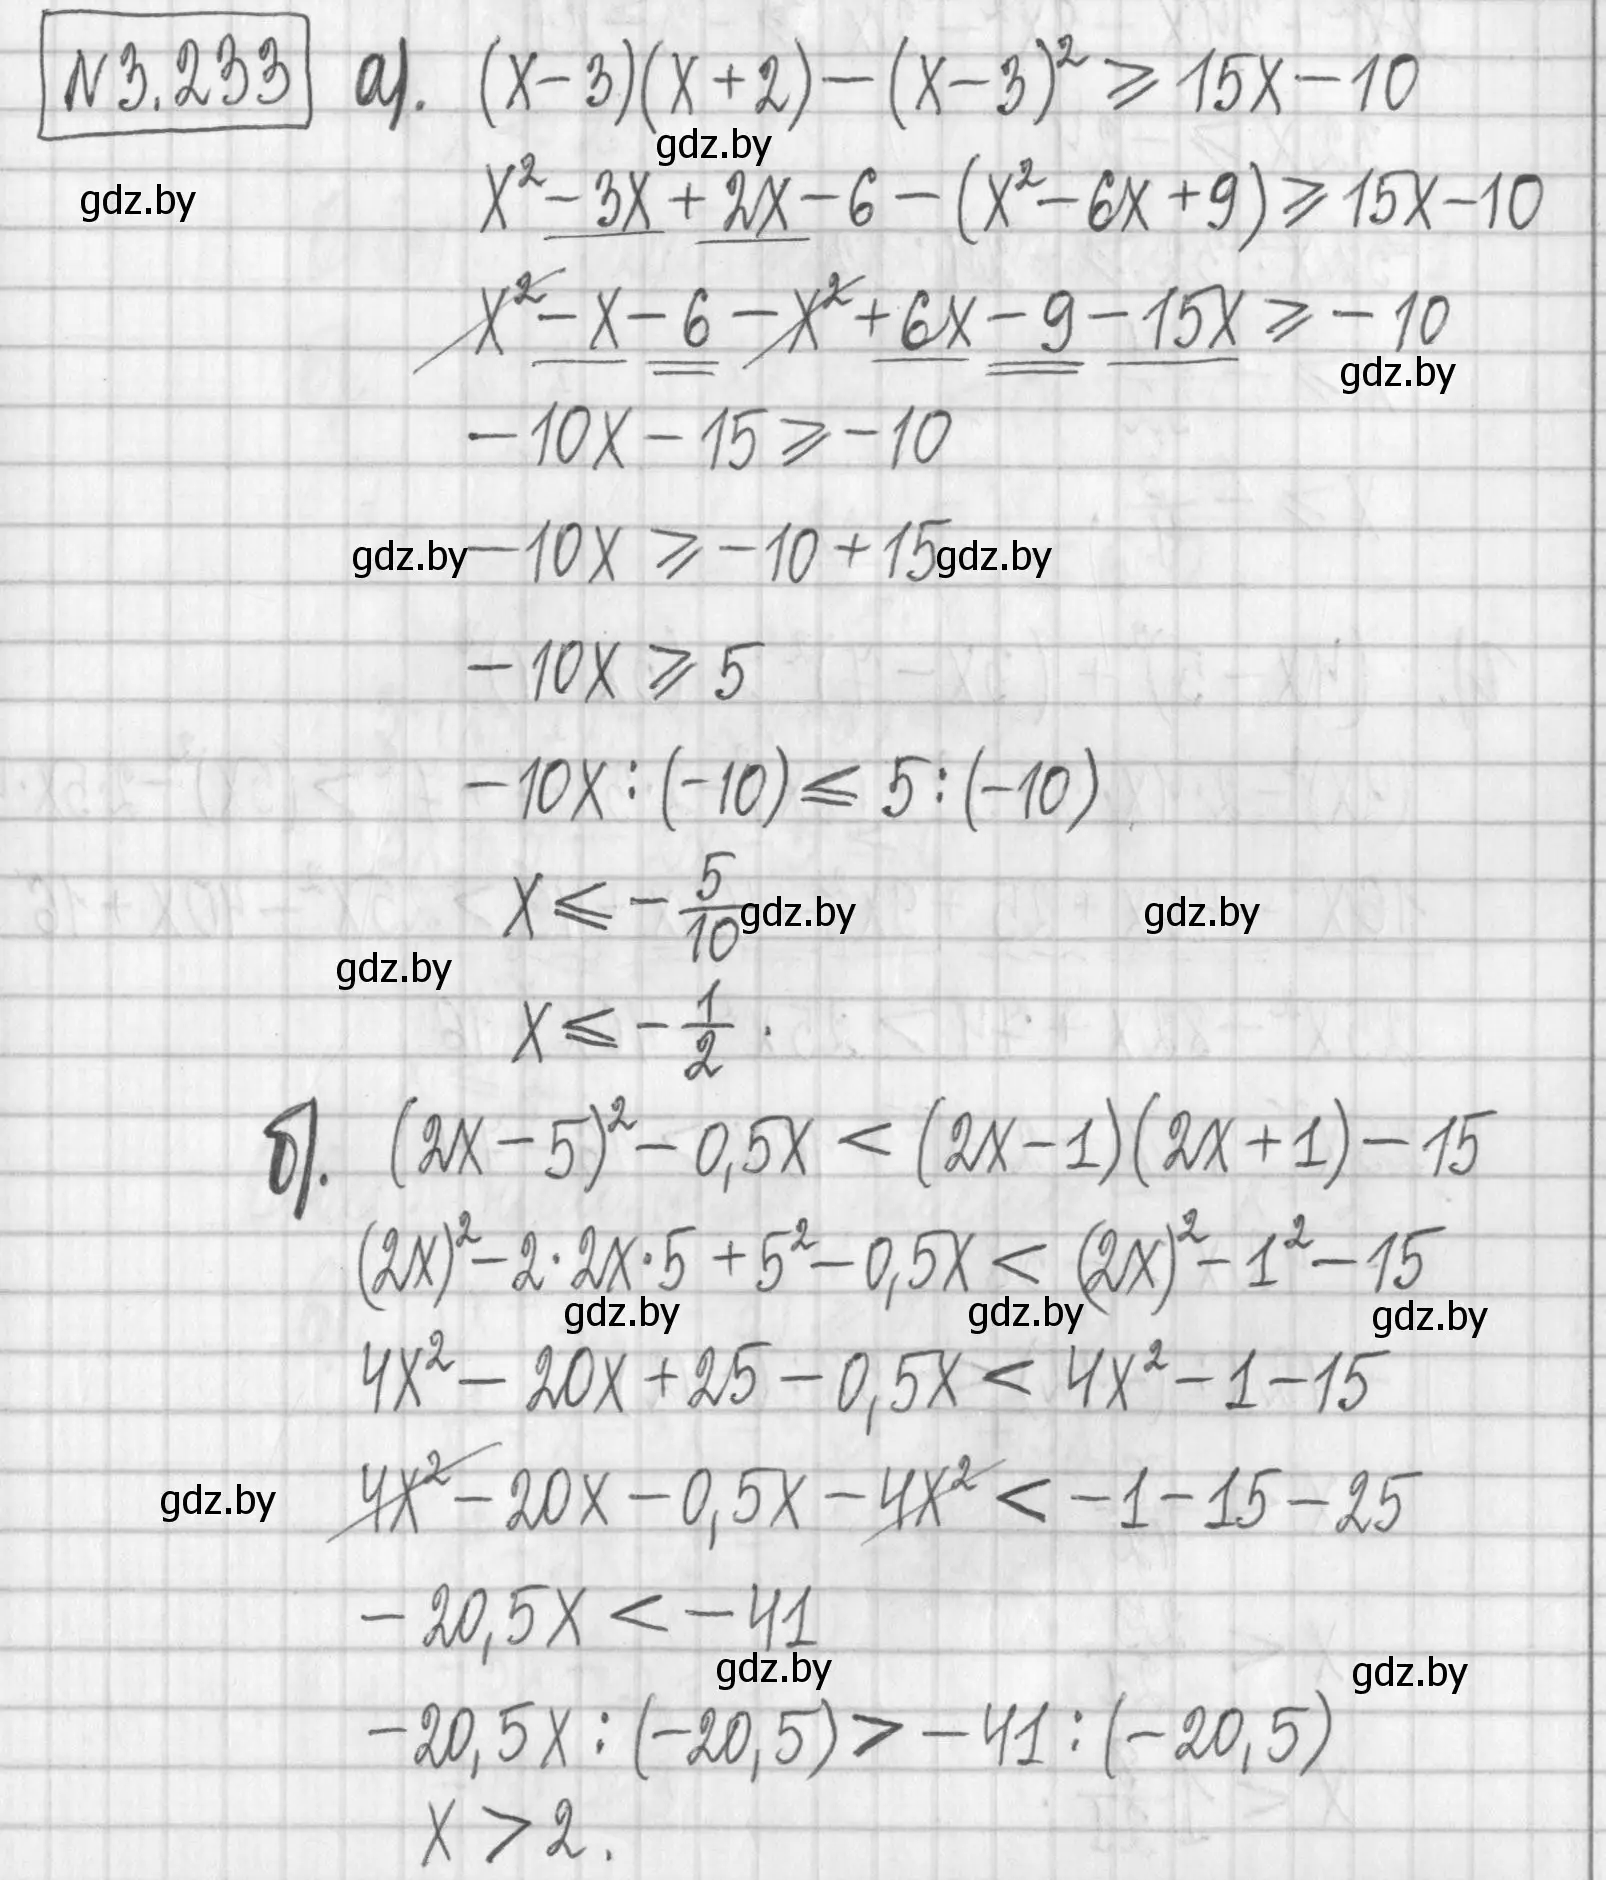 N3.233 а). (x-3)(x+2)-(x-3)² ⩾ 15x-10
gdz.by
gdz.by x²-3x+2x-6-(x²-6x+9) ⩾ 15x-10
x²-x-6-x²+6x-9-15x ⩾ -10
gdz.by
-10x-15 ⩾ -10
gdz.by -10x ⩾ -10+15 gdz.by
-10x ⩾ 5
-10x:(-10) ⩽ 5:(-10)
x ⩽ -5/10 gdz.by gdz.by
gdz.by
x ⩽ -1/2.
б). (2x-5)²-0,5x < (2x-1)(2x+1)-15
(2x)²-2·2x·5+5²-0,5x < (2x)²-1²-15
gdz.by gdz.by gdz.by
4x²-20x+25-0,5x < 4x²-1-15
gdz.by 4x²-20x-0,5x-4x² < -1-15-25
-20,5x < -41
gdz.by gdz.by
-20,5x:(-20,5) > -41:(-20,5)
x > 2.